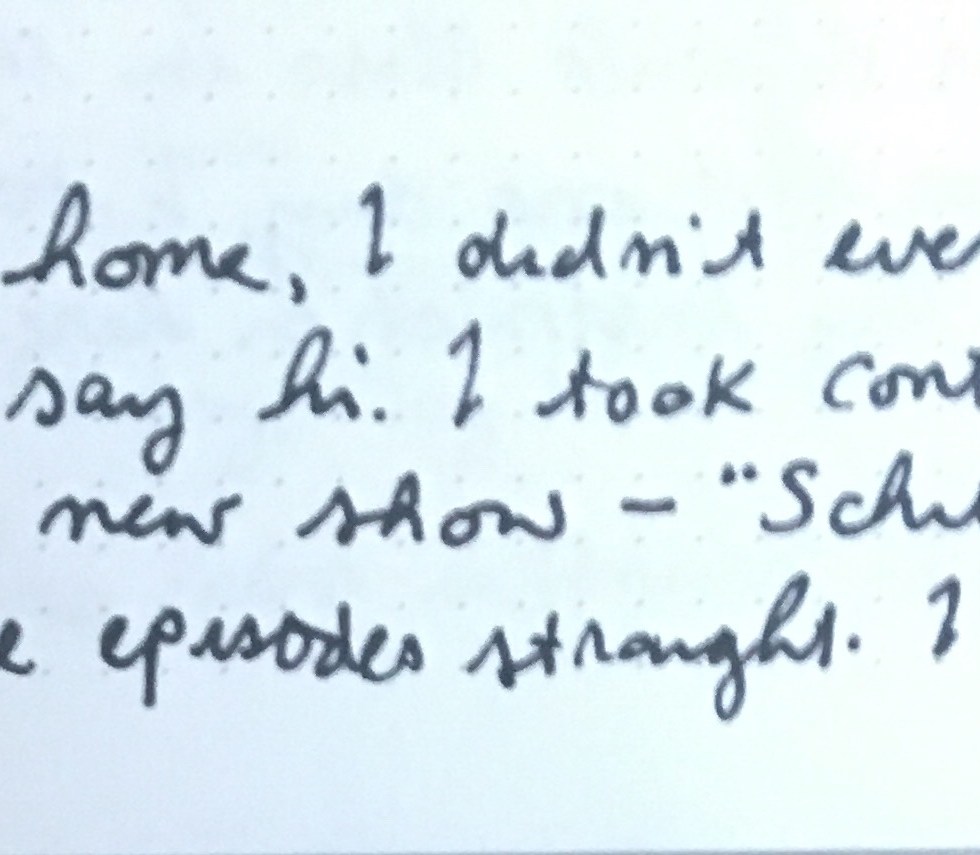 home, I didn't eve
say hi. I took cont
new show - "Sch
e episodes straight. I